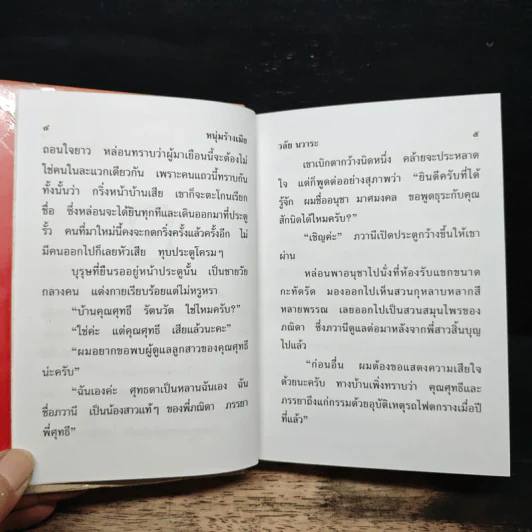 ๔
หนุ่มร้างเมีย
ถอนใจยาว หล่อนทราบว่าผู้มาเยือนนี้จะต้องไม่
ใช่คนในละแวกเดียวกัน เพราะคนแถวนี้ทราบกัน
ทั้งนั้นว่า กริ่งหน้าบ้านเสีย เขาก็จะตะโกนเรียก
ชื่อ ซึ่งหล่อนจะได้ยินทุกทีและเดินออกมาที่ประตู
รั้ว คนที่มาใหม่นี้คงจะกดกริ่งครั้งแล้วครั้งอีก ไม่
มีคนออกไปก็เลยหัวเสีย ทุบประตูโครมๆ
บุรุษที่ยืนรออยู่หน้าประตูนั้น เป็นชายวัย
กลางคน แต่งกายเรียบร้อยแต่ไม่หรูหรา
“บ้านคุณศุทธี รัตนวัต ใช่ไหมครับ?”
“ใช่ค่ะ แต่คุณศุทธี เสียแล้วนะคะ”
“ผมอยากขอพบผู้ดูแลลูกสาวของคุณศุทธี
น่ะครับ”
“ฉันเองค่ะ ศุทธดาเป็นหลานฉันเอง ฉัน
ชื่อภวานี เป็นน้องสาวแท้ๆ ของพี่ภณิดา ภรรยา
พี่ศุทธี”
วลัย นวาระ
๕
เขาเบิกตากว้างนิดหนึ่ง คล้ายจะประหลาด
ใจ แต่ก็พูดต่ออย่างสุภาพว่า “ยินดีครับที่ได้
รู้จัก ผมชื่ออนุชา มาศมงคล ขอพูดธุระกับคุณ
สักนิดได้ไหมครับ?”
“เชิญค่ะ” ภวานีเปิดประตูกว้างขึ้นให้เขา
ผ่าน
หล่อนพาอนุชาไปนั่งที่ห้องรับแขกขนาด
กะทัดรัด มองออกไปเห็นสวนกุหลาบหลากสี
หลายพรรณ เลยออกไปเป็นสวนสมุนไพรของ
ภณิดา ซึ่งภวานีดูแลต่อมาหลังจากพี่สาวสิ้นบุญ
ไปแล้ว
“ก่อนอื่น ผมต้องขอแสดงความเสียใจ
ด้วยนะครับ ทางบ้านเพิ่งทราบว่า คุณศุทธีและ
ภรรยาถึงแก่กรรมด้วยอุบัติเหตุรถไฟตกรางเมื่อปี
ที่แล้ว”